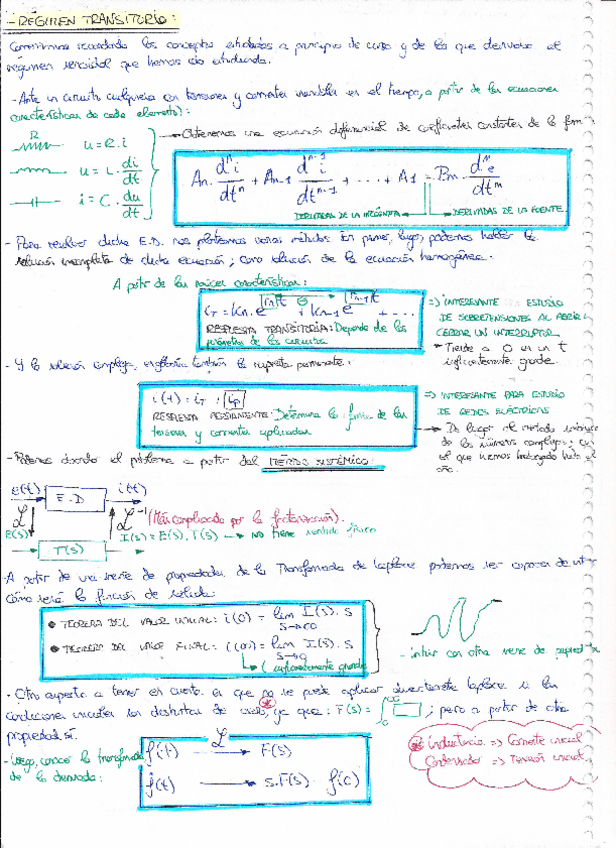 - RÉGIMEN TRANSITORIO:
Comenzamos recordando los conceptos estudiados a principio de curso y de los que derivaba el
régimen senoidal que hemos ido estudiando.
- Ante un circuito cualquiera con tensiones y corrientes variables en el tiempo, a partir de las ecuaciones
características de cada elemento:
R
u = R.i
u = L. di/dt
i = C. du/dt
Obtenemos una ecuación diferencial de coeficientes constantes de la
An. dⁿi/dtⁿ + An-1 dⁿ⁻¹i/dtⁿ⁻¹ + ... + A1 = Bm. dᵐe/dtᵐ
DERIVADAS DE LA INCÓGNITA
DERIVADAS DE LA FUENTE
- Para resolver dicha E.D. nos planteamos varios métodos. En primer lugar, podemos hallar la
solución incompleta de dicha ecuación; como solución de la ecuación homogénea.
A partir de las raíces características:
+ ...
RESPUESTA TRANSITORIA: Depende de los
parámetros de los circuitos
=> INTERESANTE ESTUDIO
DE SOBRETENSIONES AL ABRIR/
CERRAR UN INTERRUPTOR
Tiende a 0 en un t
suficientemente grande.
- Y la solución compleja, englobaría también la respuesta permanente:
i(t) = iT + ip
RESPUESTA PERMANENTE: Determina la forma de las
tensiones y corrientes aplicadas
=> INTERESANTE PARA ESTUDIO
DE REDES ELÉCTRICAS
Da lugar al método
de los números complejos;
el que hemos trabajado hasta el
- Podemos abordar el problema a partir del MÉTODO SISTÉMICO
e(t) E.D i(t)
L L⁻¹ (Más complicado por la factorización).
E(S) I(s) = E(s). T(s) → NO tiene sentido físico
T(s)
- A partir de una serie de propiedades de la Transformada de Laplace podemos ser capaces de
cómo será la función de salida:
• TEOREMA DEL VALOR INICIAL: i(0) = lim I(s). s
S→∞
• TEOREMA DEL VALOR FINAL: i(∞) = lim I(s). s
S→0
(suficientemente grande
- intuir con otra serie de
- Otro aspecto a tener en cuenta es que no se puede aplicar directamente Laplace si las
condiciones iniciales son distintas de cero, ya que: F(s) = ∫ ; pero a partir de otra
propiedad sí.
- Luego, conocer la transformada
de la derivada:
f(t) L F(s)
f(t) s.F(s) - f(0)
Inductancia => Corriente inicial
Condensador => Tensión inicial